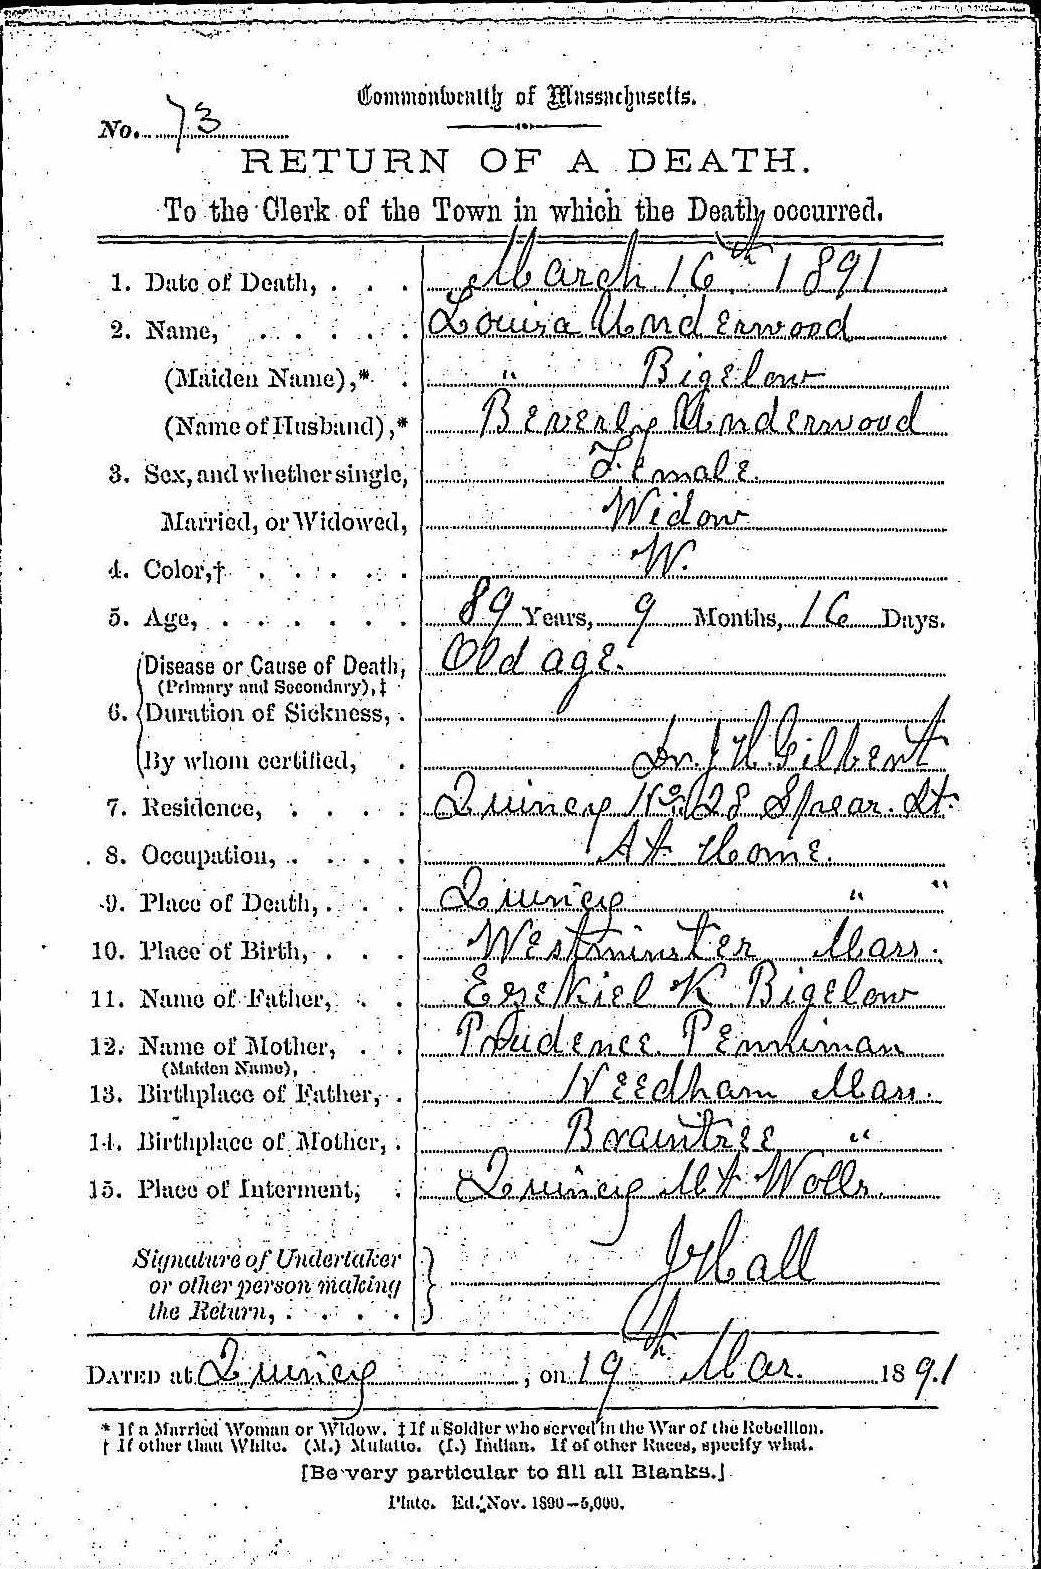 Commonwealth of Massachusetts.
No. 73
RETURN OF A DEATH.
To the Clerk of the Town in which the Death occurred.
1. Date of Death, . . . March 16th 1891
2. Name, . . . . . Louisa Underwood
(Maiden Name),* . " Bigelow
(Name of Husband),* Beverly Underwood
3. Sex, and whether single, Female.
Married, or Widowed, Widow
4. Color,† . . . . . W.
5. Age, . . . . . . 89 Years, 9 Months, 16 Days.
Disease or Cause of Death, Old age.
(Primary and Secondary),‡
6. Duration of Sickness, .
By whom certified, . Dr. J H. Gilbert
7. Residence, . . . . Quincy No. 28 Spear. St.
8. Occupation, . . . . At Home.
9. Place of Death, . . . Quincy " "
10. Place of Birth, . . . Westminster Mass.
11. Name of Father, . . Ezekiel K Bigelow
12. Name of Mother, . . Prudence Penniman
(Maiden Name),
13. Birthplace of Father, . Needham Mass.
14. Birthplace of Mother, . Braintree "
15. Place of Interment, . Quincy Mt Wolls.
Signature of Undertaker
or other person making J Hall
the Return, . . . .
DATED at Quincy, on 19th Mar. 1891
* If a Married Woman or Widow. ‡ If a Soldier who served in the War of the Rebellion.
† If other than White. (M.) Mulatto. (I.) Indian. If of other Races, specify what.
[Be very particular to fill all Blanks.]
Plate. Ed. Nov. 1890—5,000.